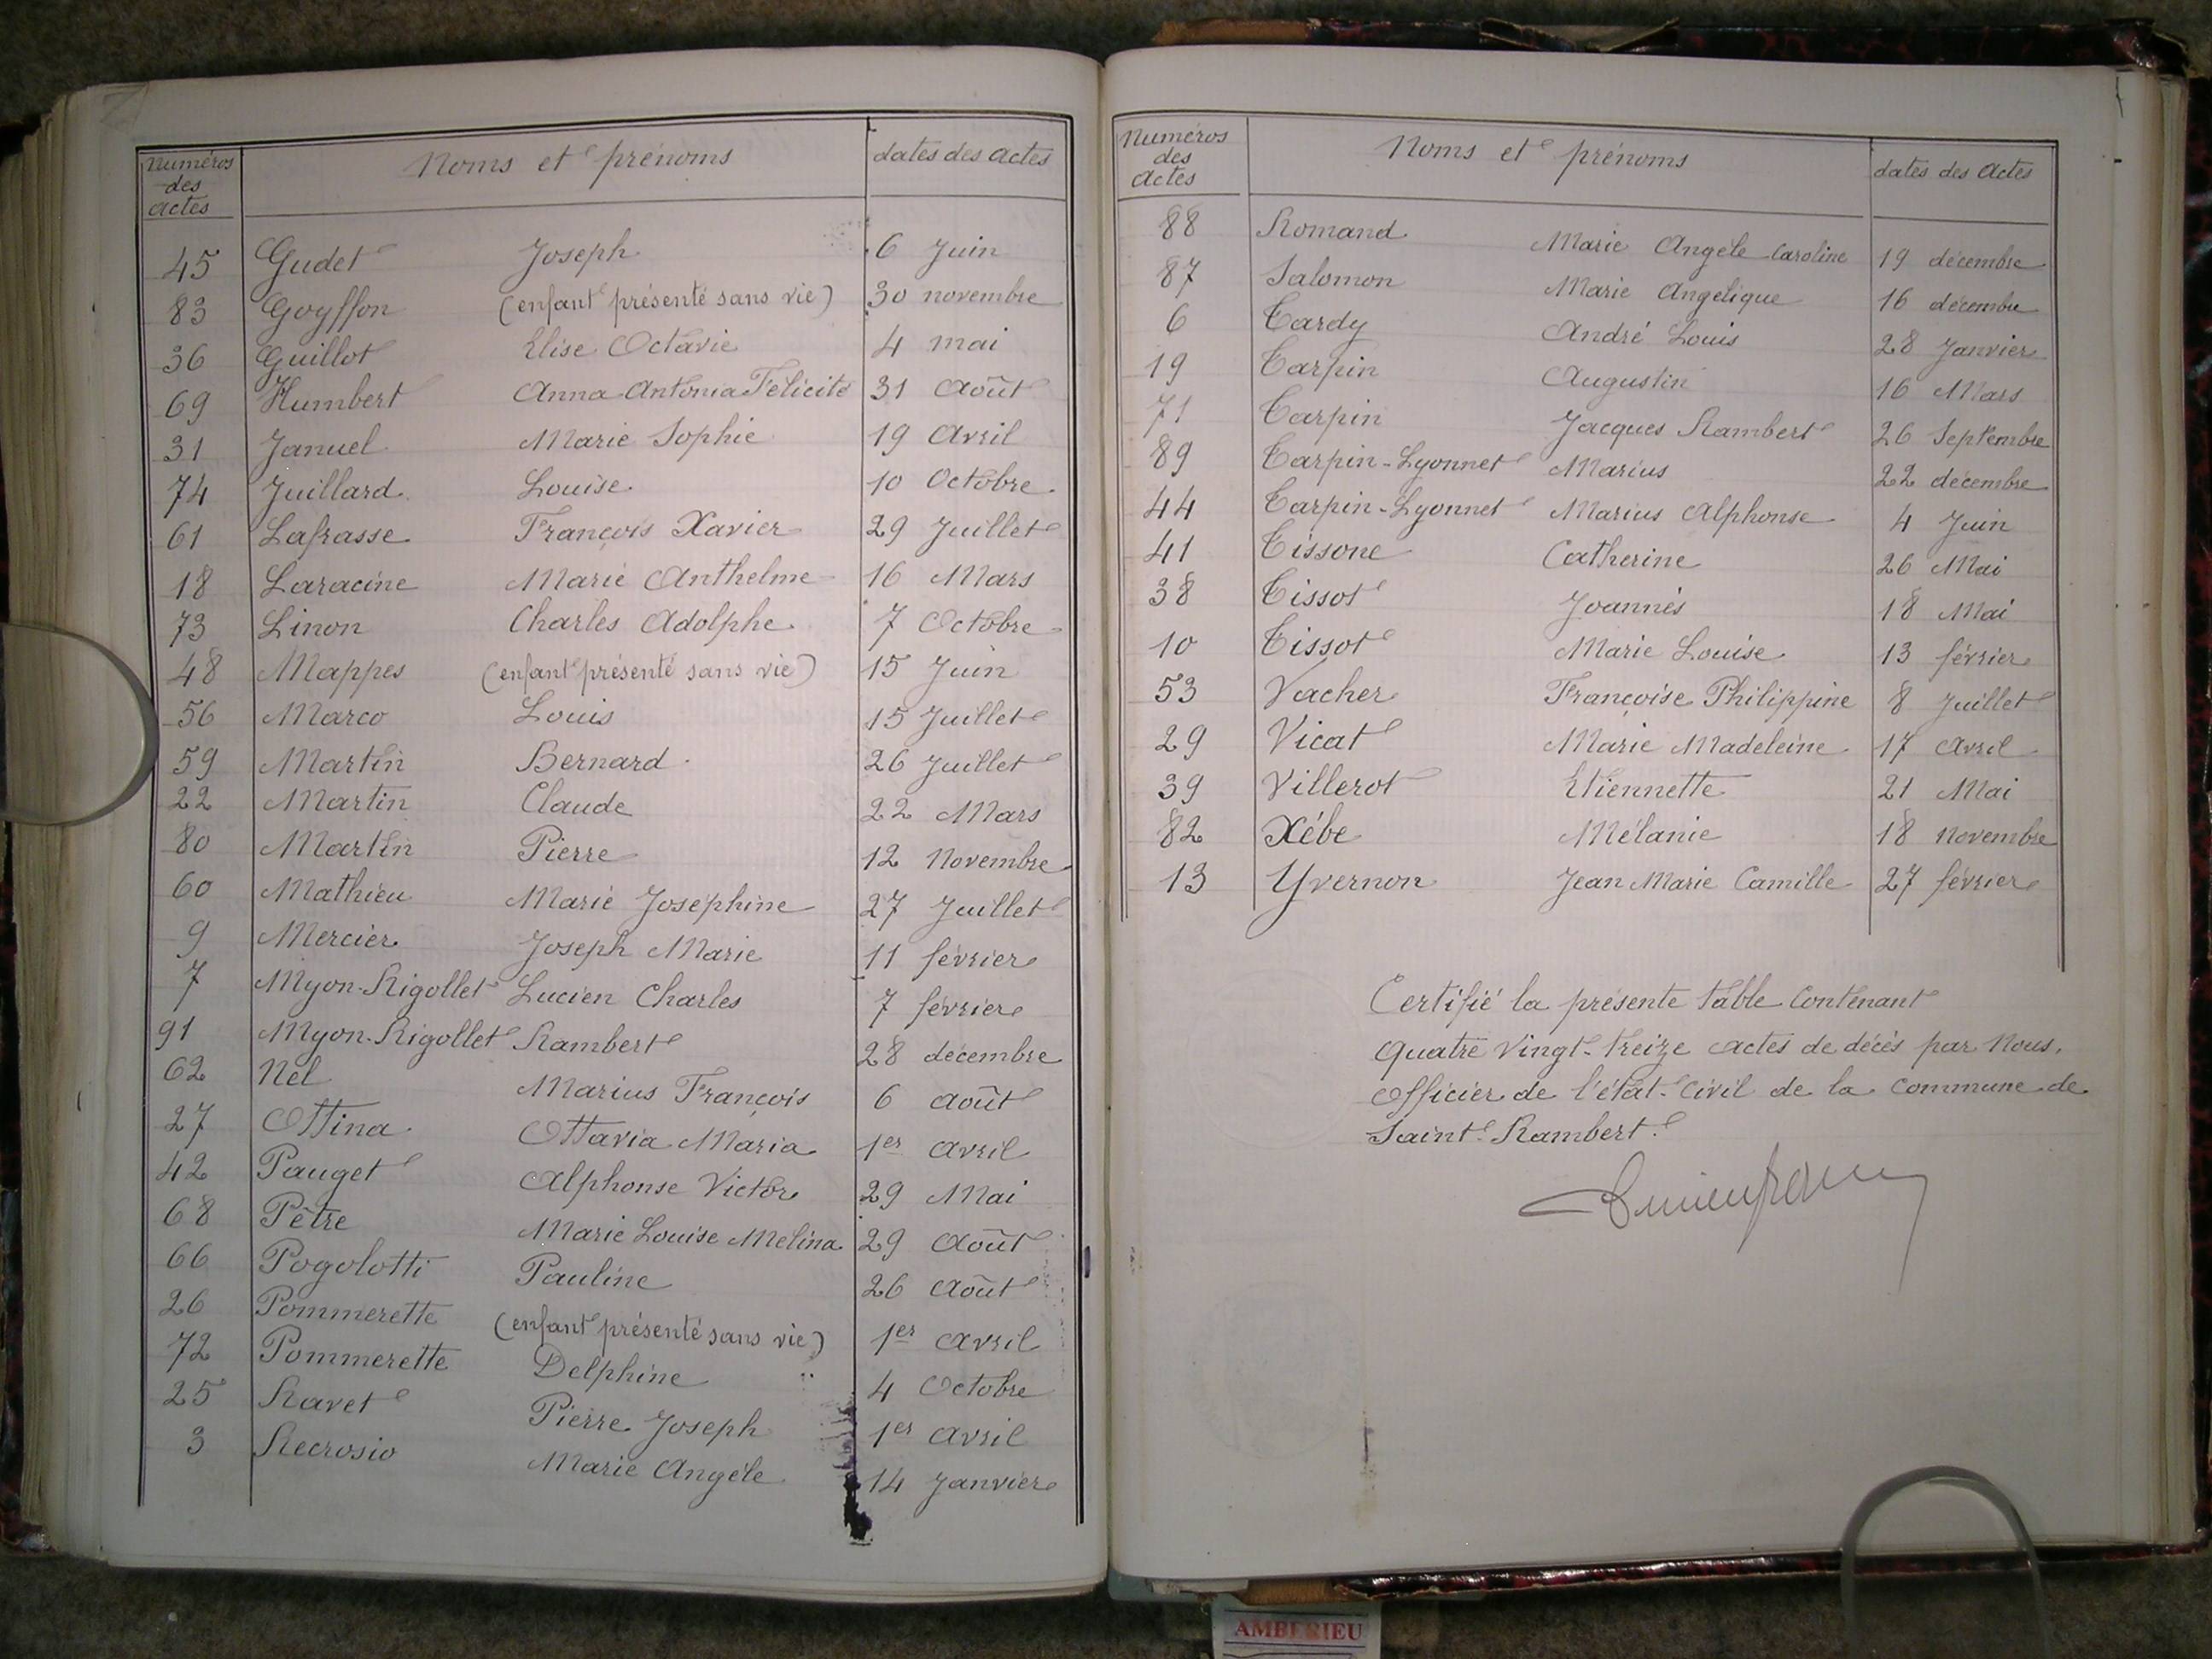 Numéros des actes Noms et prénoms dates des actes
45 Gudet Joseph 6 Juin
83 Goyffon (enfant présenté sans vie) 30 novembre
36 Guillot Elise Octavie 4 mai
69 Humbert Anna Antonia Félicité 31 Août
31 Januel Marie Sophie 19 Avril
74 Juillard Louise 10 Octobre
61 Lafrasse François Xavier 29 Juillet
18 Laracine Marie Anthelme 16 Mars
73 Linon Charles Adolphe 7 Octobre
48 Mappes (enfant présenté sans vie) 15 Juin
56 Marco Louis 15 Juillet
59 Martin Bernard 26 Juillet
22 Martin Claude 22 Mars
80 Martin Pierre 12 Novembre
60 Mathieu Marie Joséphine 27 Juillet
9 Mercier Joseph Marie 11 février
7 Myon-Rigollet Lucien Charles 7 février
91 Myon-Rigollet Rambert 28 décembre
62 Nel Marius François 6 août
27 Ottina Ottavia Maria 1er avril
42 Pauget Alphonse Victor 29 Mai
68 Pêtre Marie Louise Mélina 29 Août
66 Pogolotti Pauline 26 Août
26 Pommerette (enfant présenté sans vie) 1er avril
72 Pommerette Delphine 4 Octobre
25 Ravet Pierre Joseph 1er avril
3 Recrosio Marie Angèle 14 Janvier
Numéros des Actes Noms et prénoms dates des Actes
88 Romand Marie Angèle Caroline 19 décembre
87 Salomon Marie Angélique 16 décembre
6 Tardy André Louis 28 Janvier
19 Tarpin Augustin 16 Mars
71 Tarpin Jacques Rambert 26 Septembre
89 Tarpin-Lyonnet Marius 22 décembre
44 Tarpin-Lyonnet Marius Alphonse 4 Juin
41 Tissone Catherine 26 Mai
38 Tissot Joannès 18 Mai
10 Tissot Marie Louise 13 février
53 Vacher Françoise Philippine 8 Juillet
29 Vicat Marie Madeleine 17 avril
39 Villerot Etiennette 21 Mai
82 Xébe Mélanie 18 novembre
13 Yvernon Jean Marie Camille 27 février
Certifié la présente table Contenant
quatre vingt-treize actes de décès par Nous,
Officier de l'état-civil de la Commune de
Saint-Rambert.
AMBERIEU